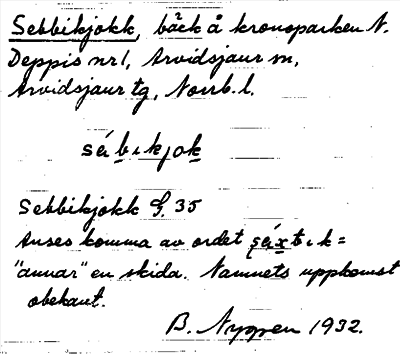 Sebbikjokk, bäck å kronoparken N.
Deppis nr 1, Arvidsjaur sn,
Arvidsjaur tg, Norrb. l.
sɛ́bikjok
Sebbikjokk G. 35
Anses komma av ordet
"annar" en skida. Namnets uppkomst
obekant.
B. Nyppen 1932.